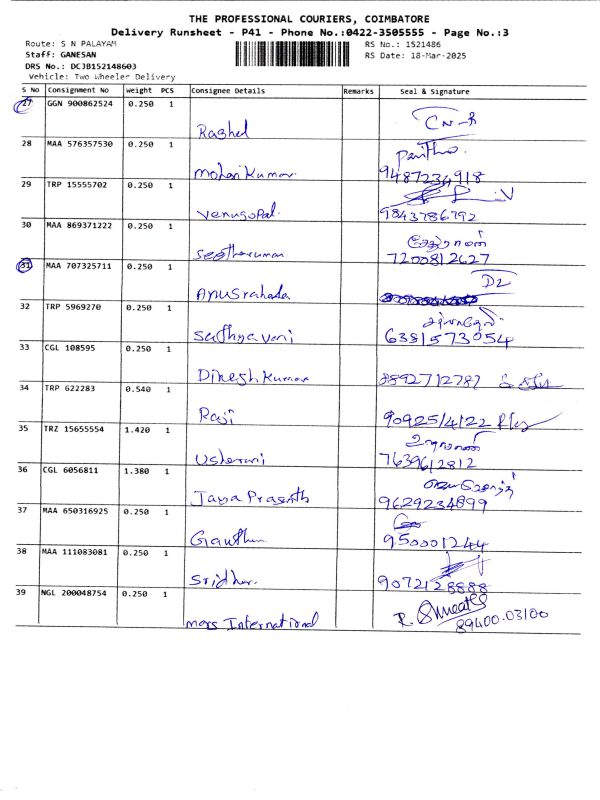 THE PROFESSIONAL COURIERS, COIMBATORE
Delivery Runsheet - P41 - Phone No.:0422-3505555 - Page No.:3
Route: S N PALAYAM
RS No.: 1521486
Staff: GANESAN
RS Date: 18-Mar-2025
DRS No.: DCJB152148603
Vehicle: Two Wheeler Delivery
S No Consignment No Weight PCS Consignee Details Remarks Seal & Signature
27 GGN 900862524 0.250 1
Rashel
28 MAA 576357530 0.250 1
Mohan Kumar
9487234918
29 TRP 15555702 0.250 1
Venugopal.
9843786792
30 MAA 869371222 0.250 1
Seetharaman
7200812627
31 MAA 707325711 0.250 1
D2
Anusrahada
32 TRP 5969270 0.250 1
Sathyavani
6381573054
33 CGL 108595 0.250 1
Dinesh Kumar
34 TRP 622283 0.540 1
Raji
90925/4/22
35 TRZ 15655554 1.420 1
Usharani
7639612812
36 CGL 6056811 1.380 1
Jaya Prasanth
9629234899
37 MAA 650316925 0.250 1
950001244
38 MAA 111083081 0.250 1
Sridhar.
9072128888
39 NGL 200048754 0.250 1
mars International
89400-03100